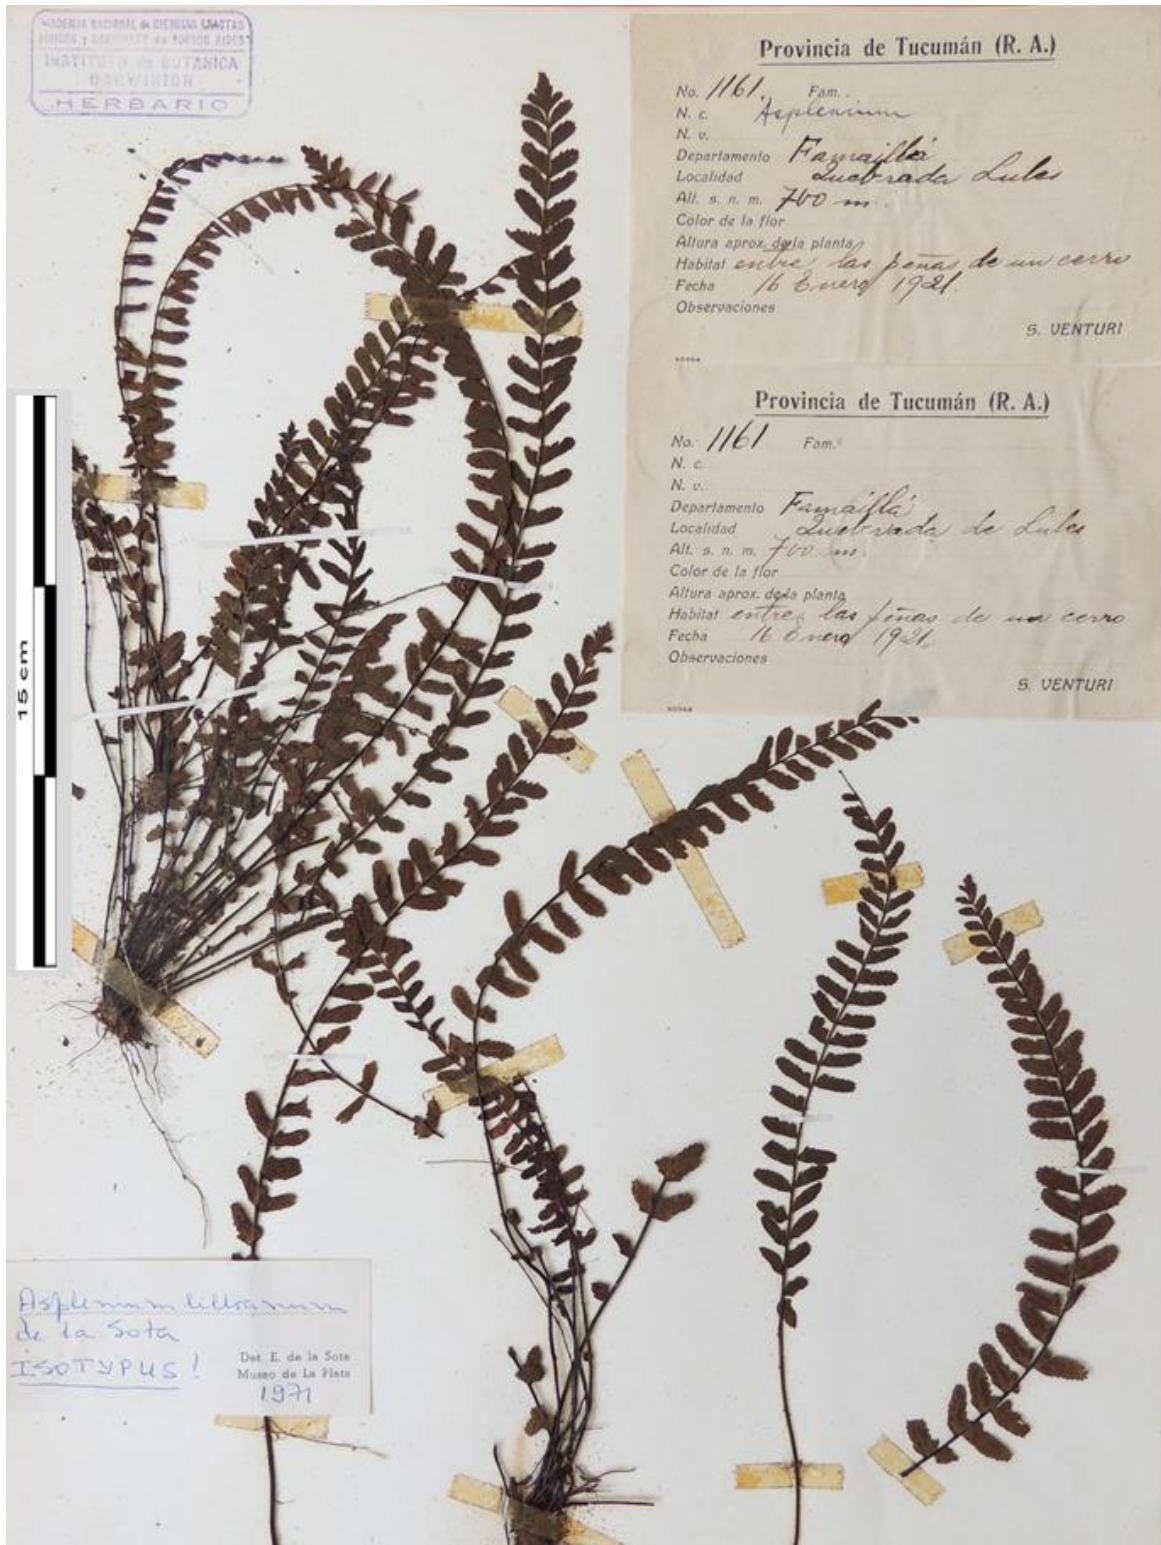 ACADEMIA NACIONAL de CIENCIAS EXACTAS
FISICAS y NATURALES de BUENOS AIRES
INSTITUTO de BOTANICA
DARWINION
HERBARIO
Provincia de Tucumán (R. A.)
No. 1161. Fam.
N. c. Asplenium
N. v.
Departamento Famaillá
Localidad Quebrada Lules
Alt. s. n. m. 700 m.
Color de la flor
Altura aprox. de la planta
Habitat entre las peñas de un cerro
Fecha 16 Enero 1921.
Observaciones
S. VENTURI
Provincia de Tucumán (R. A.)
No. 1161 Fam.
N. c.
N. v.
Departamento Famaillá
Localidad Quebrada de Lules
Alt. s. n. m. 700 m.
Color de la flor
Altura aprox. de la planta
Habitat entre las peñas de un cerro
Fecha 16 Enero 1921.
Observaciones
S. VENTURI
15 cm
Asplenium
de la Sota
ISOTYPUS!
Det. E. de la Sota
Museo de La Plata
1971